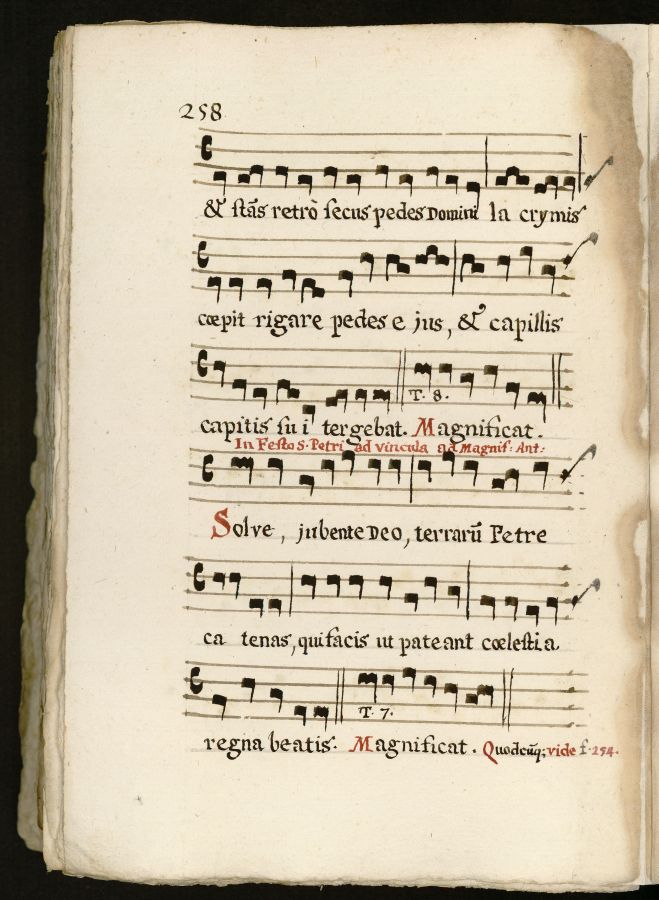 258
& stãs retrò secus pedes Domini la crymis
cœpit rigare pedes e jus, & capillis
T. 8.
capitis su i tergebat. Magnificat.
In Festo S. Petri ad vincula ad Magnif: Ant:
Solve, jubente Deo, terrarũ Petre
ca tenas, qui facis ut pateant cœlestia
T. 7.
regna beatis. Magnificat. Quodcũq; vide f. 254.